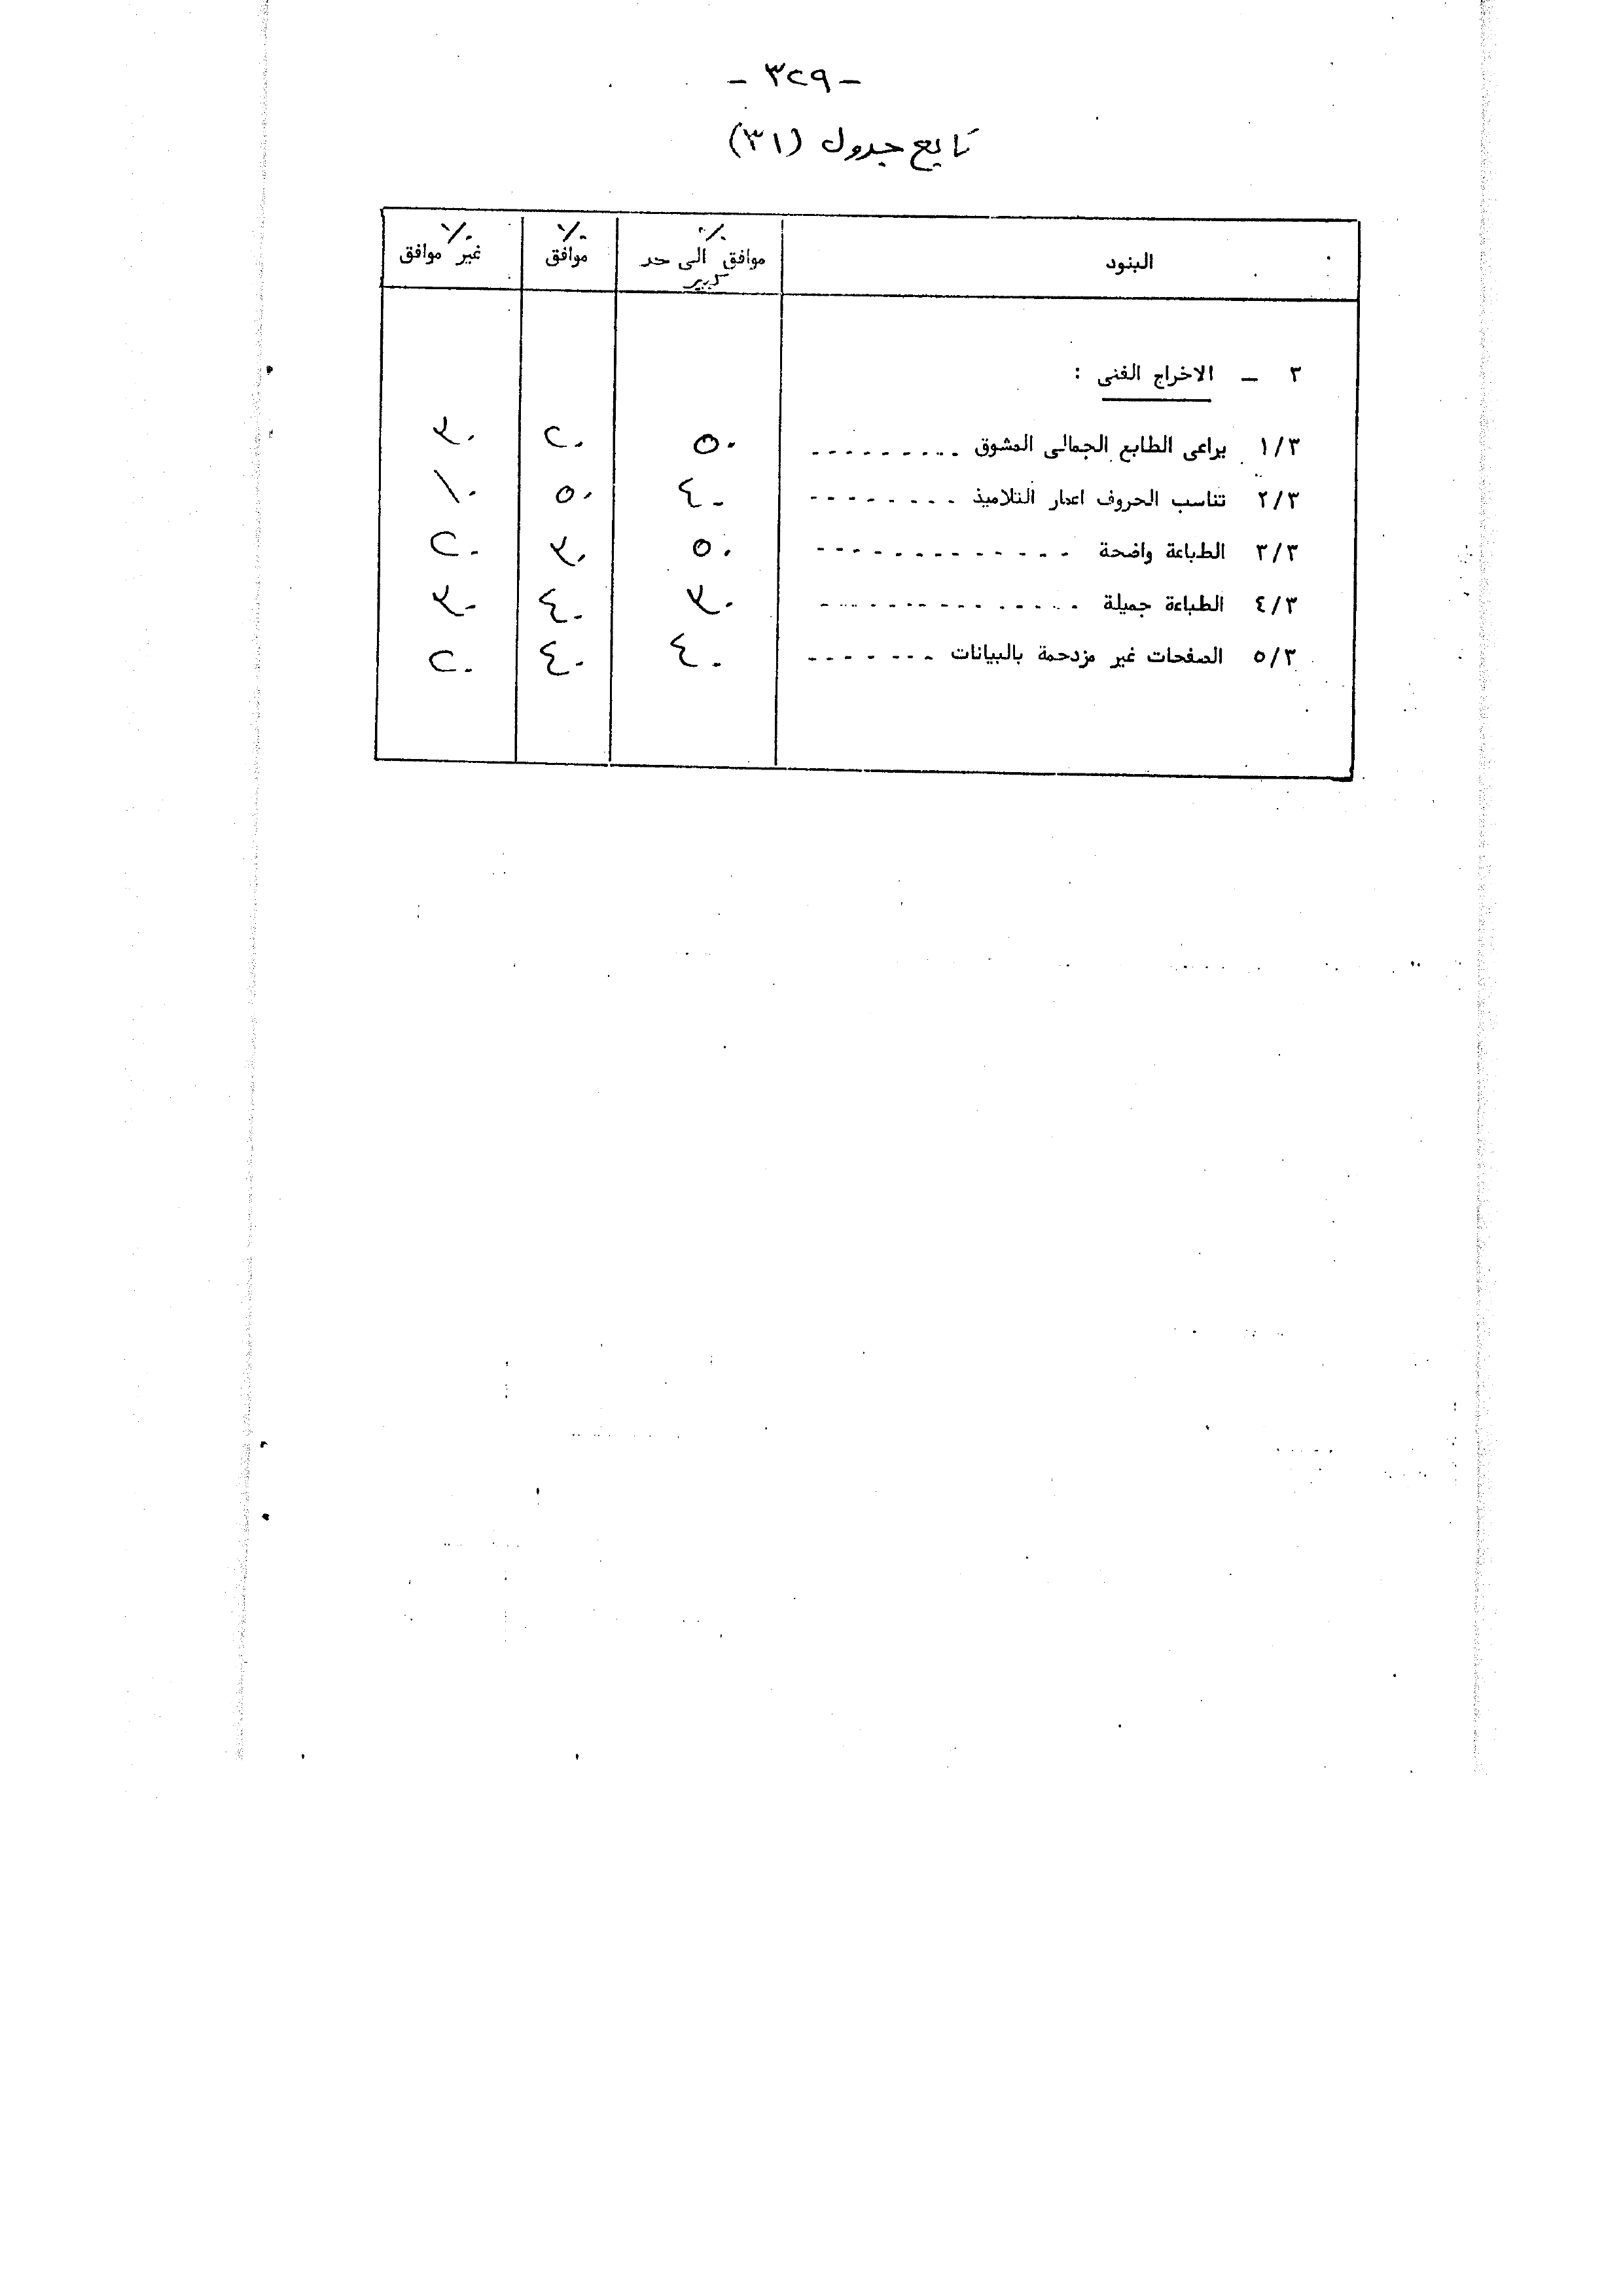 - ٣٢٩ -
تابع جدول (٣١)
البنود	٪ موافق الى حد كبير	٪ موافق	٪ غير موافق
٣ - الاخراج الفنى :
١/٣ يراعى الطابع الجمالى المشوق ---------	٥٠	٢٠	٣٠
٢/٣ تناسب الحروف اعمار التلاميذ --------	٤٠	٥٠	١٠
٣/٣ الطباعة واضحة -------------	٥٠	٣٠	٢٠
٤/٣ الطباعة جميلة --------------	٣٠	٤٠	٣٠
٥/٣ الصفحات غير مزدحمة بالبيانات -------	٤٠	٤٠	٢٠